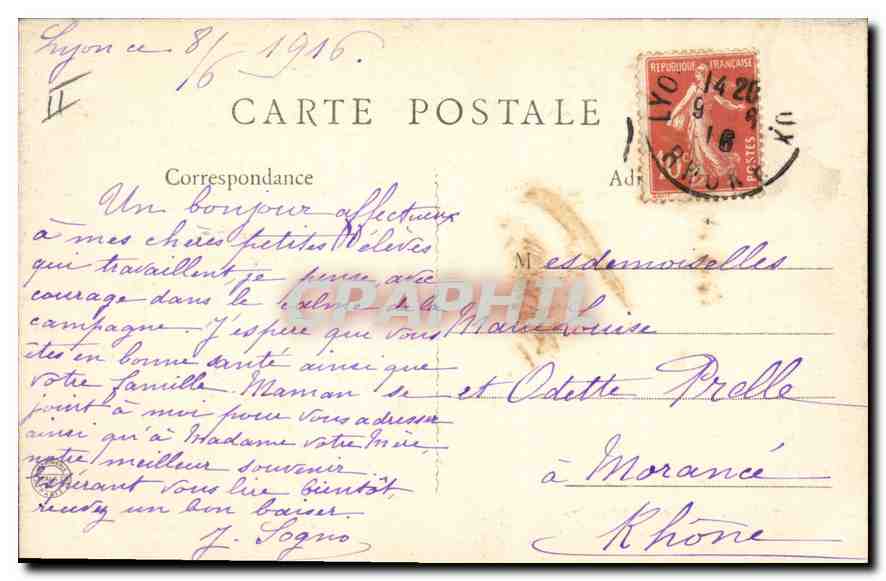 Lyon ce 8/6 1916.
CARTE POSTALE
REPUBLIQUE FRANÇAISE
POSTES
14 20
9 6
16
RHONE
Correspondance
Un bonjour affectueux
à mes chères petites élèves
qui travaillent, je pense, avec
courage dans le calme de la
campagne. J'espère que vous
êtes en bonne santé ainsi que
votre famille. Maman se
joint à moi pour vous adresser
ainsi qu'à Madame votre Mère,
notre meilleur souvenir.
Espérant vous lire bientôt,
recevez un bon baiser.
J. Sogno
Mesdemoiselles
Marie-Louise
et Odette Prelle
à Morancé
Rhône
CPAPHIL